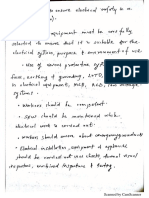 to ensure electrical safety in a
equipment must be carefully
selected to ensure that it is suitable for the
electrical system, purpose & environment of use
• Use of various protective systems
fuse, earthing or grounding, LOTO,
in electrical equipment, MCB, RCD, low voltage
systems
• Workers should be competent.
• SSOW should be maintained while
electrical work is carried out.
• Workers should aware about emergency procedures
• Electrical installation, equipment & appliances
should be carried out user checks, formal visual
inspection, combined inspection & testing.
Scanned by CamScanner